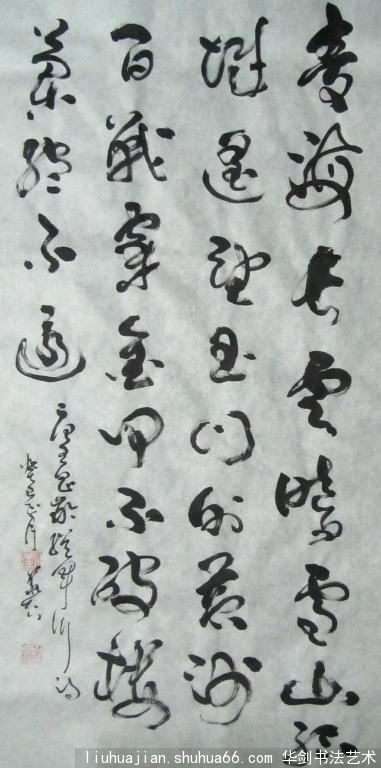 青海長雲暗雪山孤
城遥望玉门关黄沙
百戰穿金甲不破樓
蘭終不還
唐王昌龄從軍行诗
癸巳正月
liuhuajian.shuhua66.com 华剑书法艺术